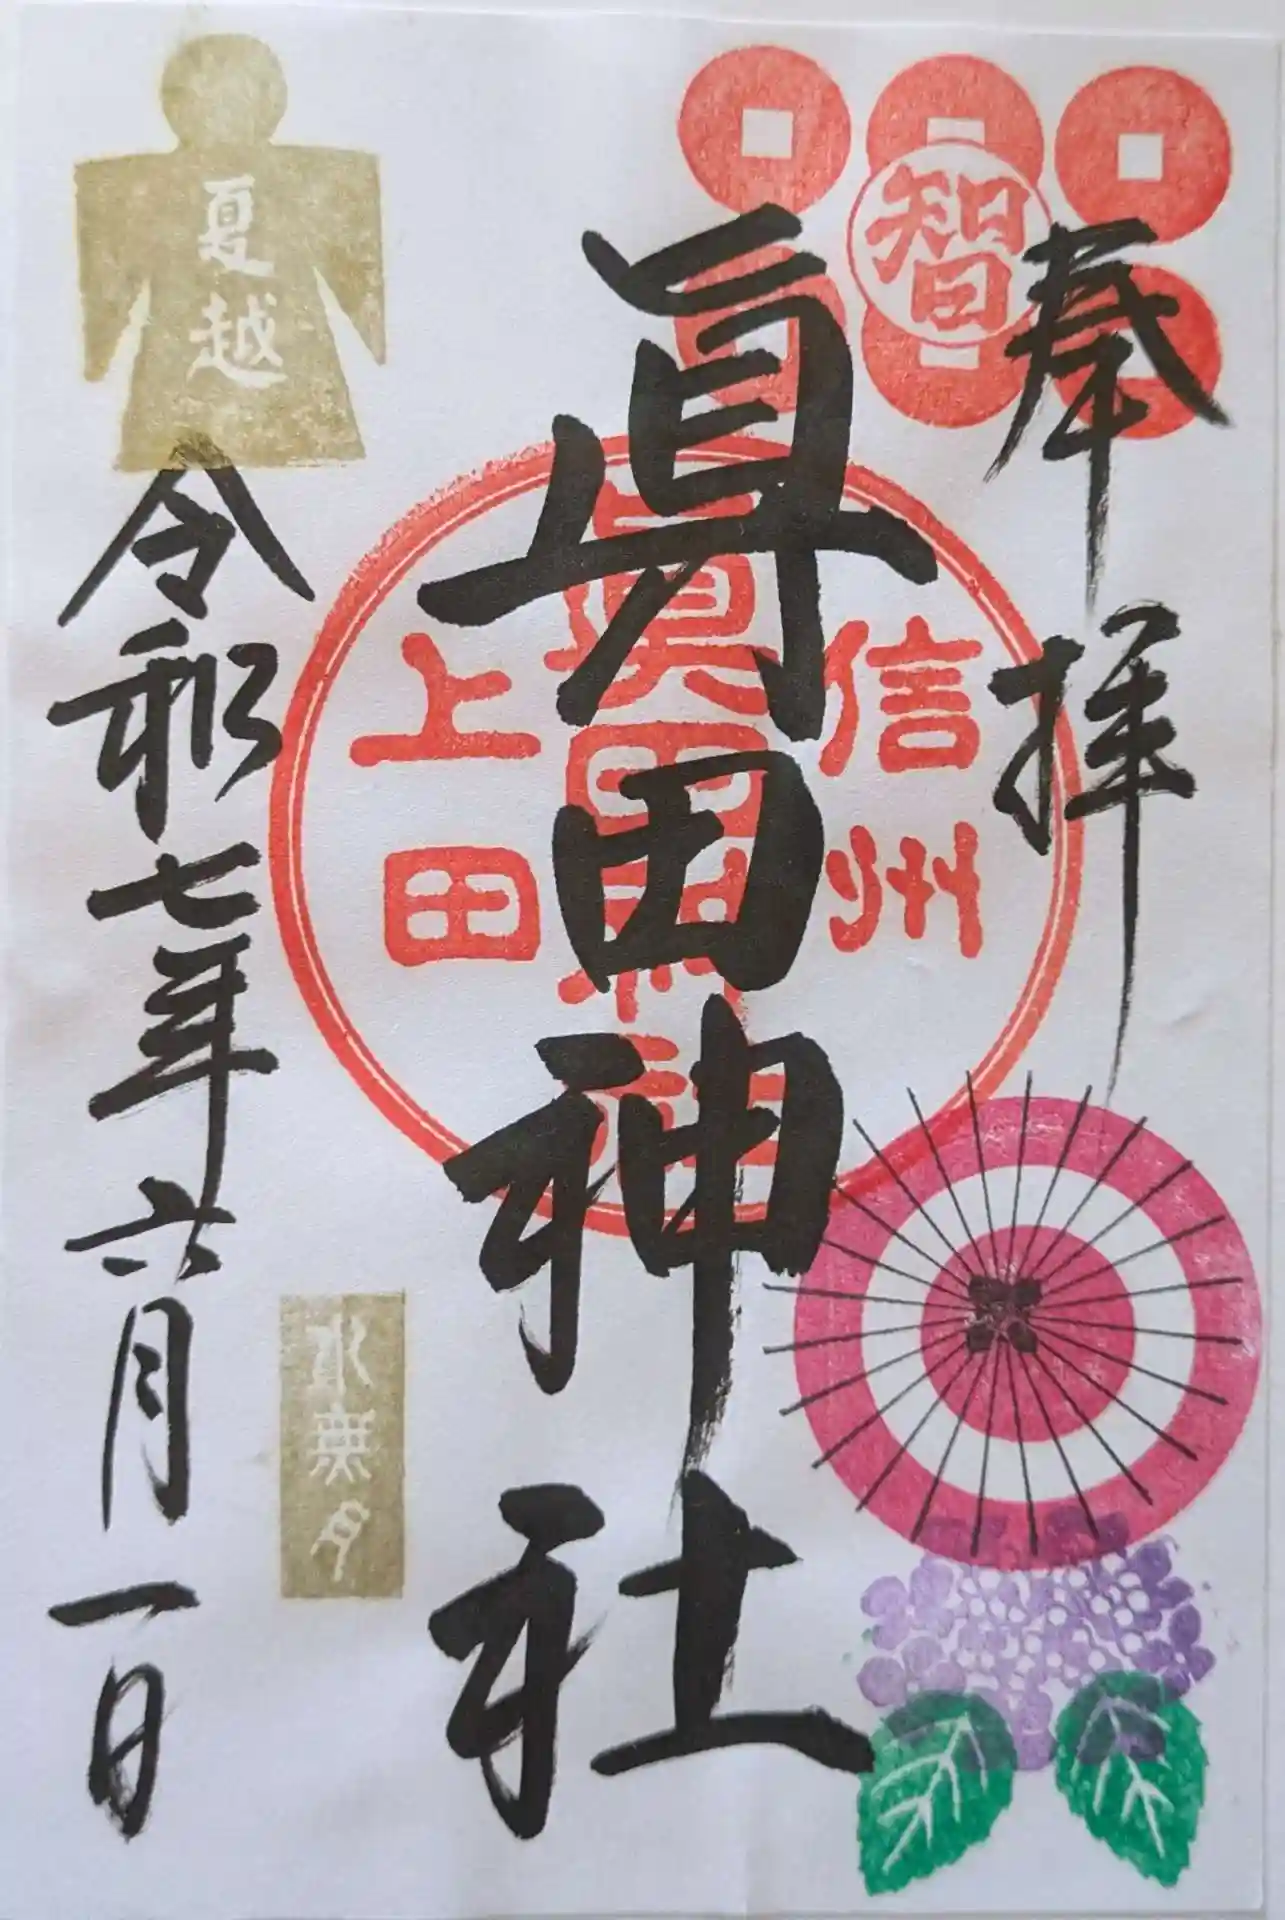 奉拝
智
信州
眞田神社
上田
眞田神社
夏越
水無月
令和七年六月一日